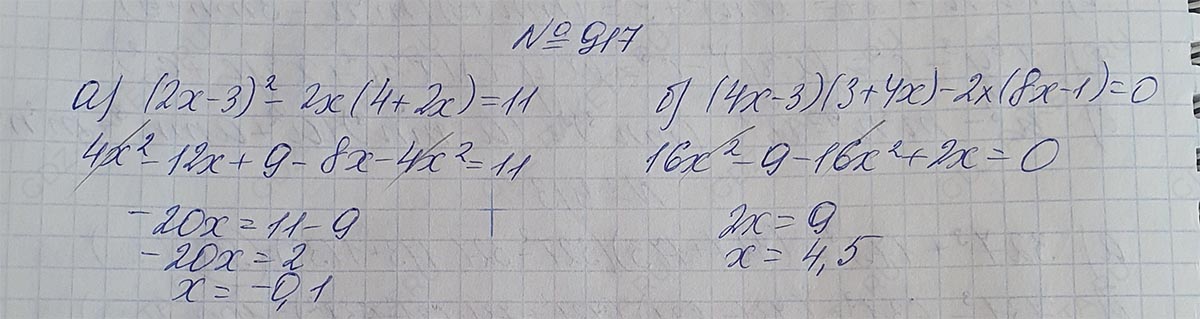 № 917
а) (2x-3)²-2x(4+2x)=11
4x²-12x+9-8x-4x²=11
-20x=11-9
-20x=2
x=-0,1
б) (4x-3)(3+4x)-2x(8x-1)=0
16x²-9-16x²+2x=0
2x=9
x=4,5